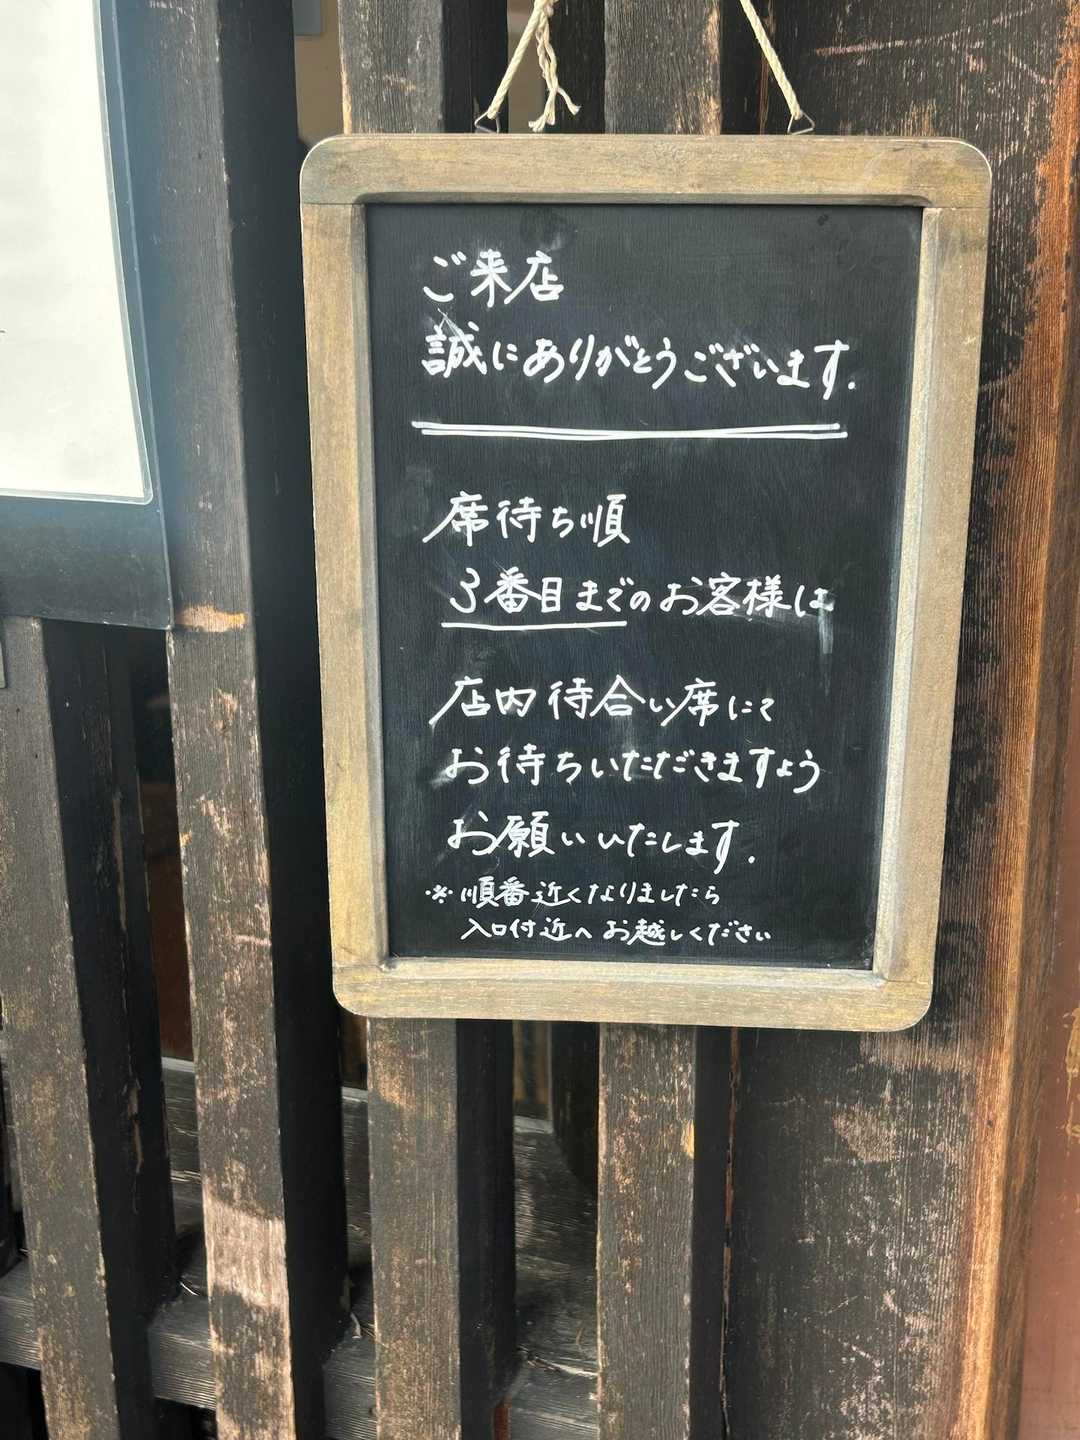 ご来店
誠にありがとうございます.
席待ち順
3番目までのお客様は
店内待合い席にて
お待ちいただきますよう
お願いいたします.
※順番近くなりましたら
入口付近へお越しください